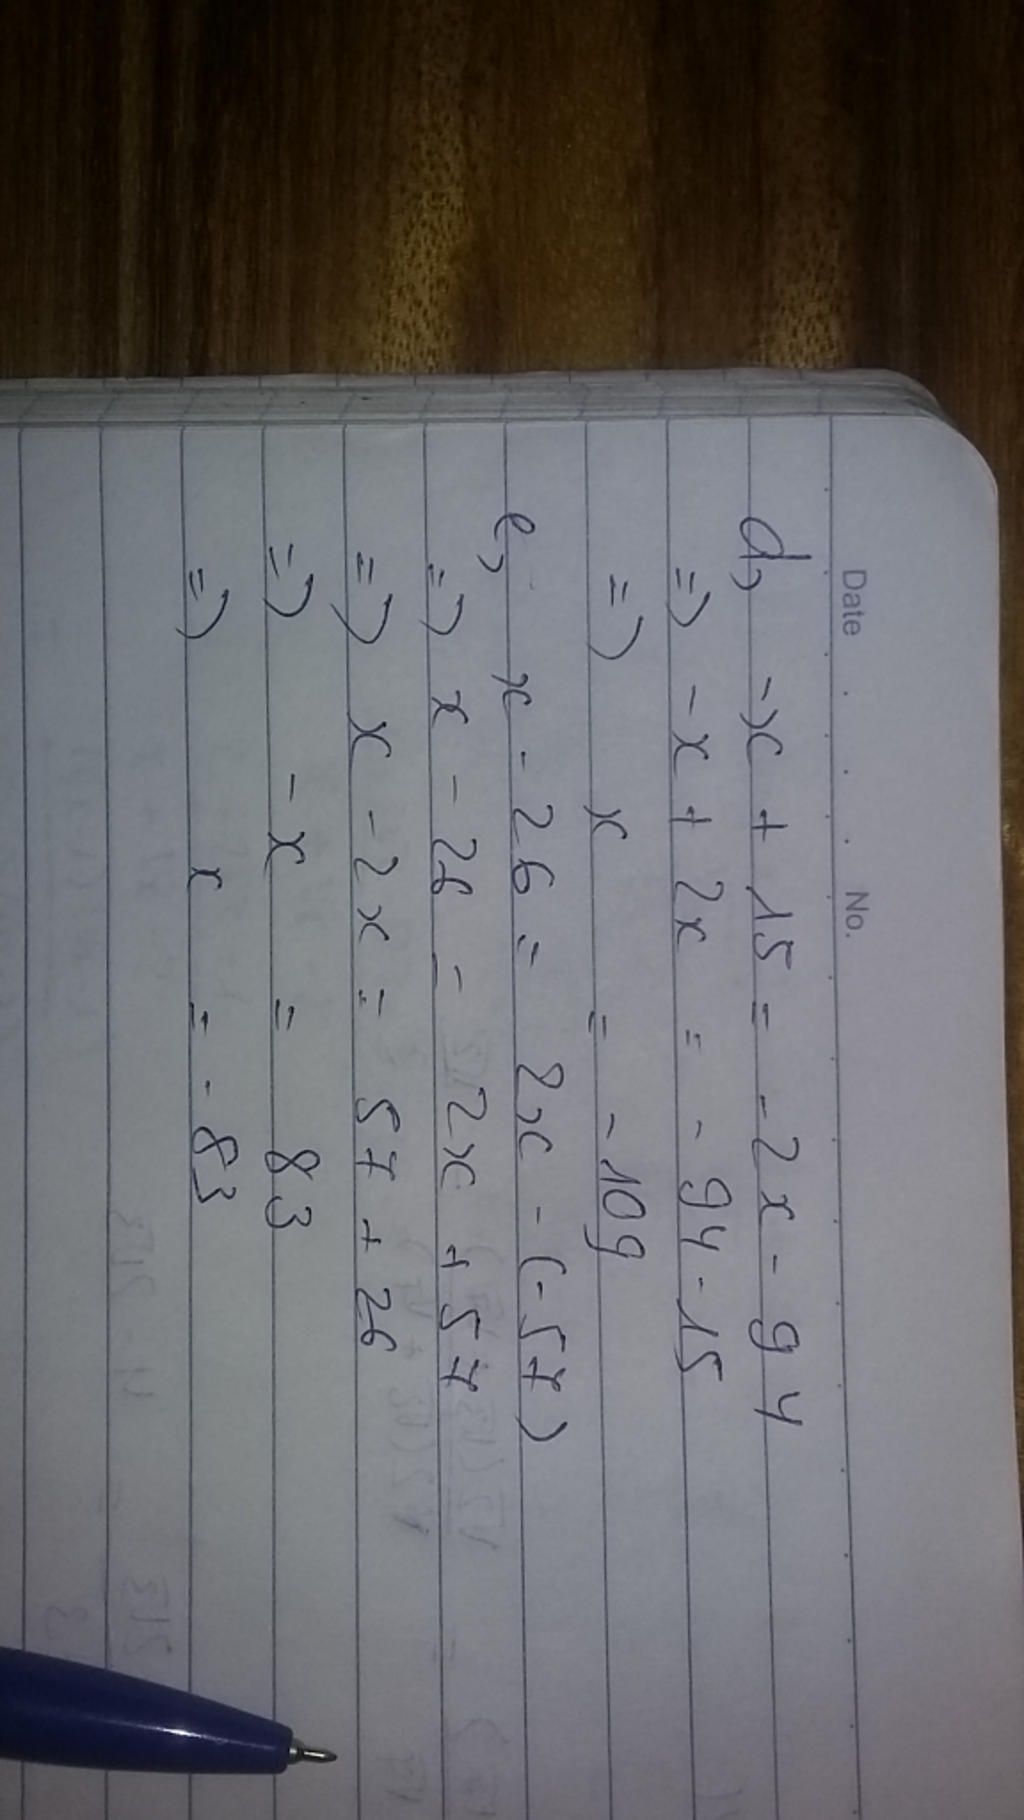 Date No.
d, -x + 15 = -2x - 94
=) -x + 2x = -94 - 15
=) x = -109
e, x - 26 = 2x - (-57)
=) x - 26 = 2x + 57
=) x - 2x = 57 + 26
=) -x = 83
=) x = -83